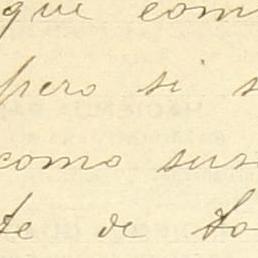 que com
pero si s
como sus
te de to